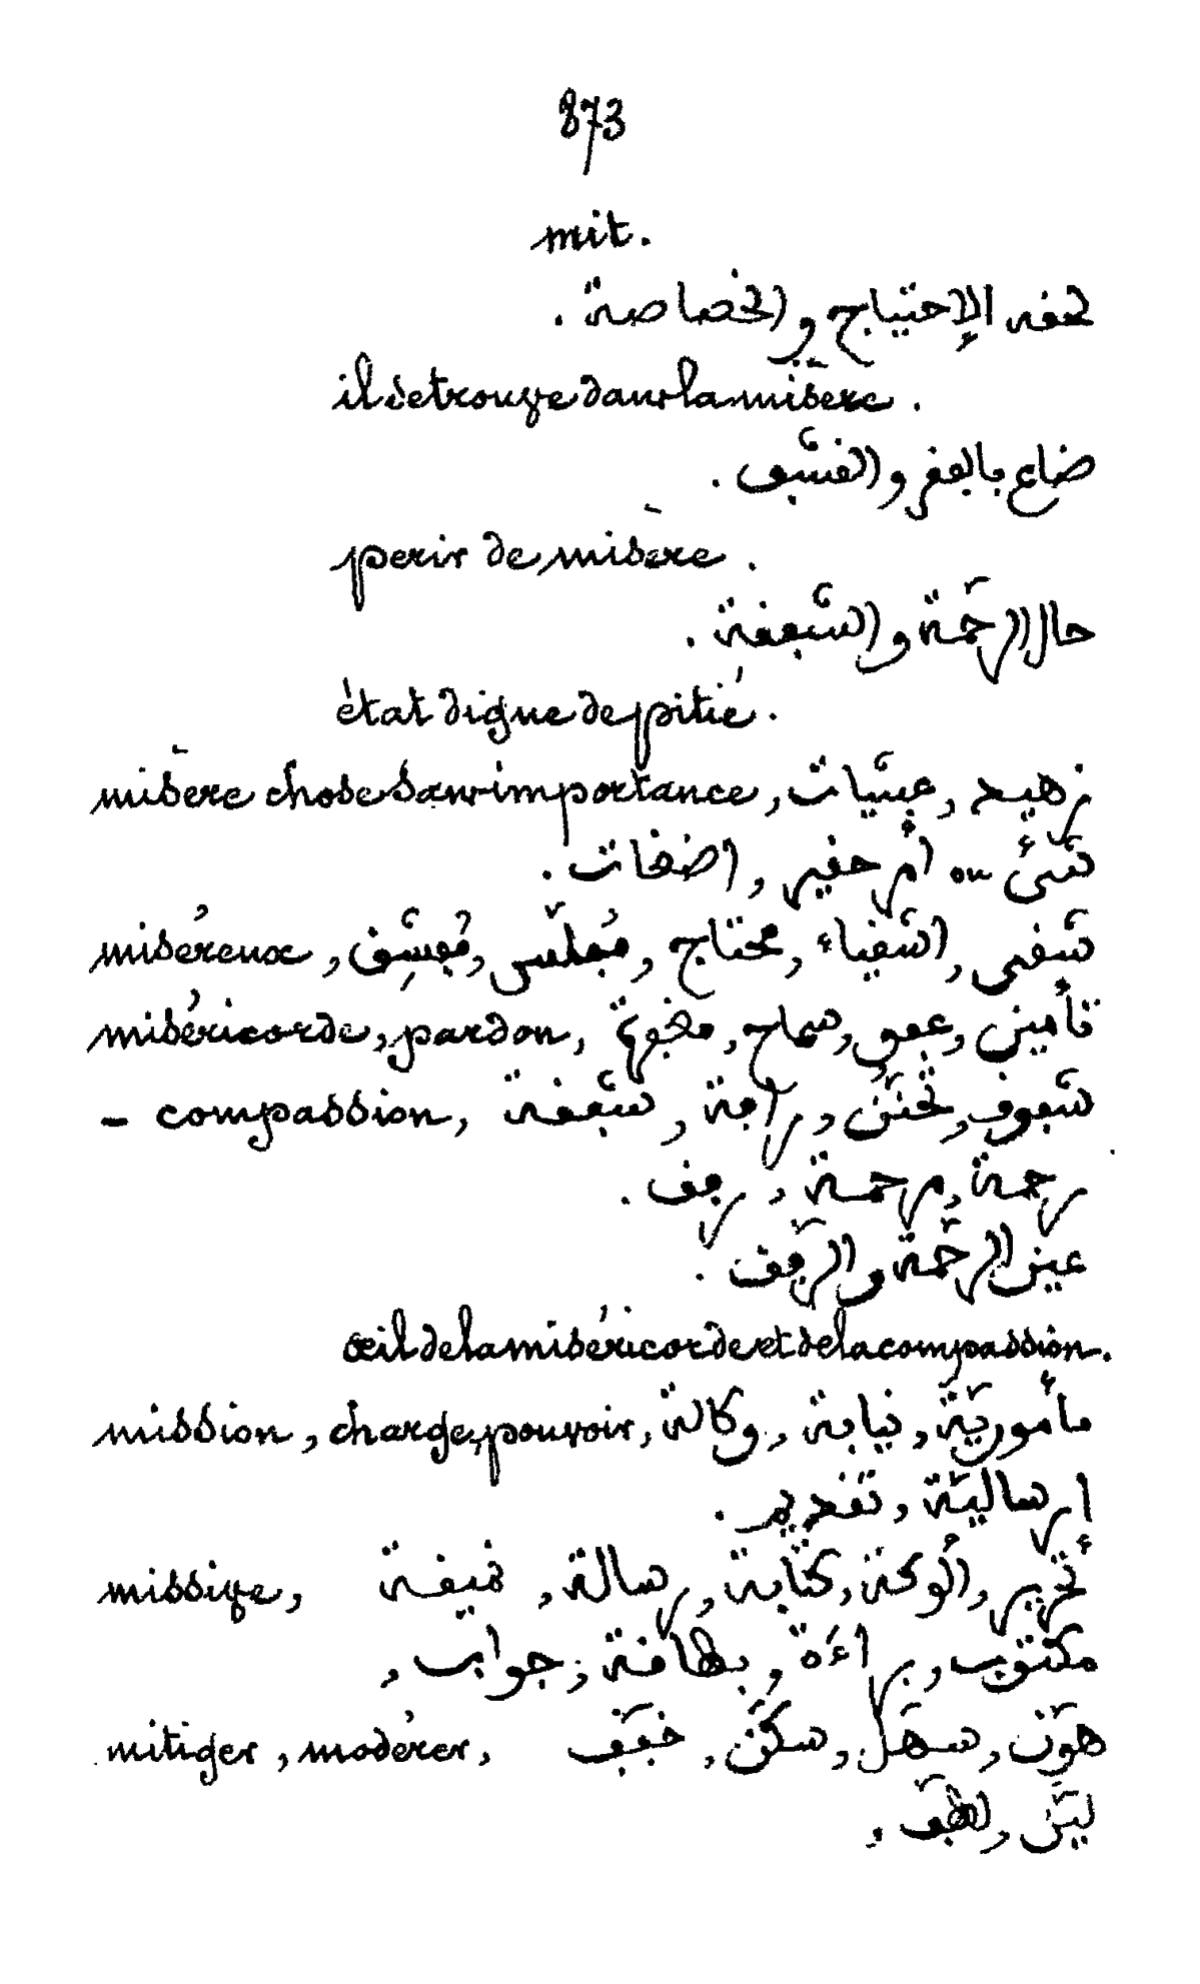 873
mit.
لحقه الإحتياج والخصاصة .
il se trouve dans la misère .
ضاع بالفقر والقشف .
perir de misère .
حال الرحمة والشفقة .
état digne de pitié .
misère chose sans importance , زهيد , عبثيات
شئ ou أمر حقير , اضغاث .
miséreux , شقي , اشقياء , محتاج , مُفلّس , مُقشِف
miséricorde, pardon, تأمين , عفو , سماح , مغفرة
– compassion, شفوف , تحنّن , رأفة , شفقة
رحمة , مرحمة , رفق .
عين الرحمة والرفق .
œil de la miséricorde et de la compassion .
mission , charge, pouvoir, مأموريّة , نيابة , وكالة
إرساليّة , تقديم .
missive, تحرير , ألوكة , كتابة , رسالة , نميقة
مكتوب , براءة , بطاقة , جواب ,
mitiger , modérer, هوّن , سهّل , سكّن , خفّف
ليّن , لطّف ,